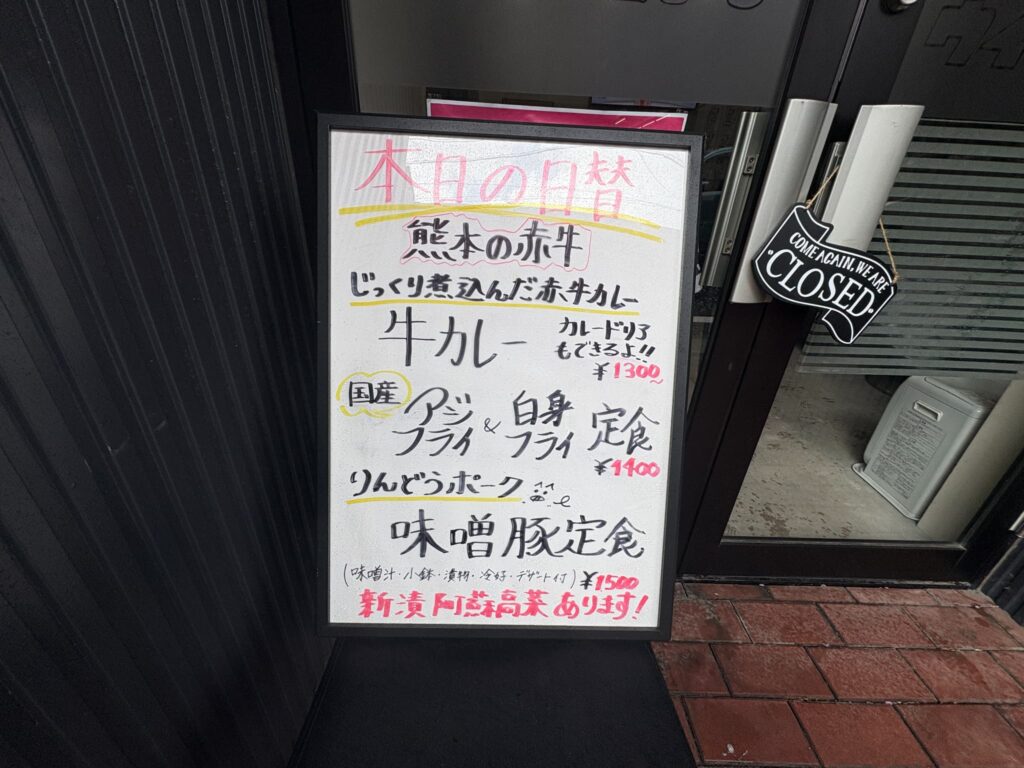 本日の日替
熊本の赤牛
じっくり煮込んだ赤牛カレー
牛カレー
カレードリア
もできるよ!!
¥1300~
国産
アジフライ & 白身フライ 定食
¥1400
りんどうポーク
味噌豚定食
(味噌汁・小鉢・漬物・冷奴・デザート付)
¥1500
新漬阿蘇高菜あります!
COME AGAIN, WE ARE
CLOSED